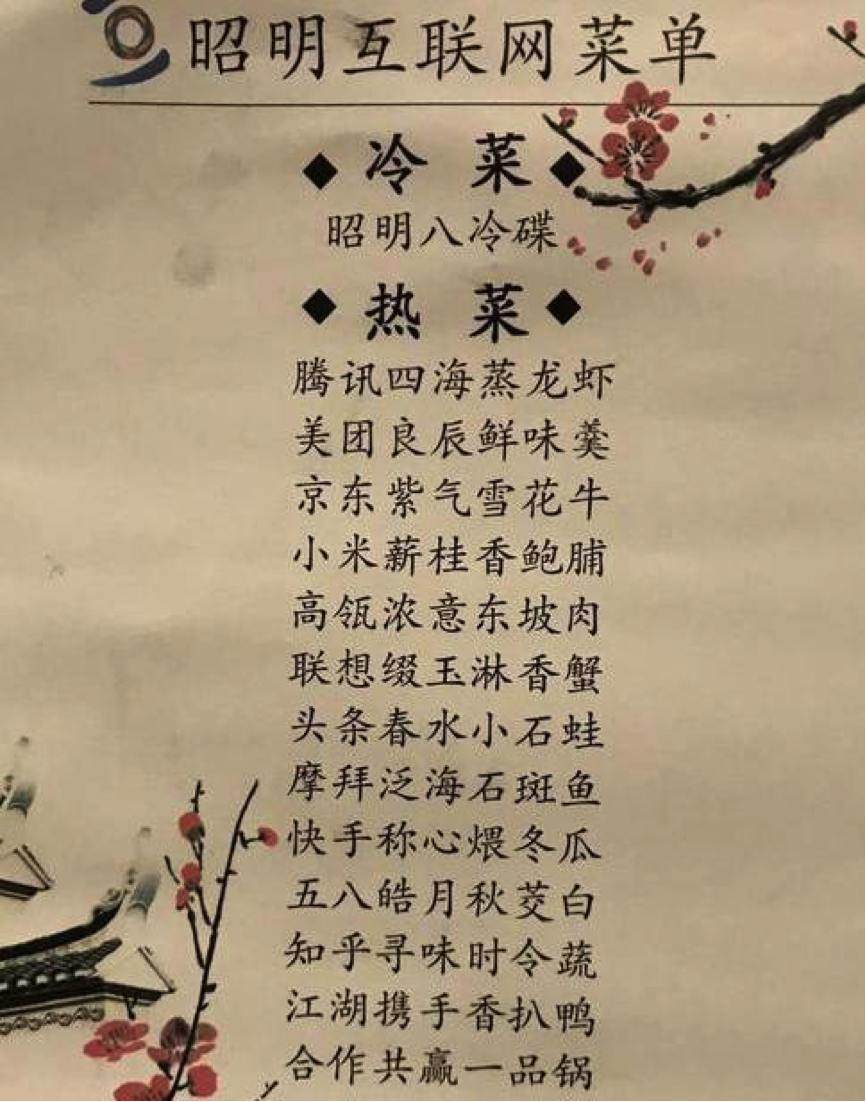 昭明互联网菜单
◆ 冷 菜 ◆
昭明八冷碟
◆ 热 菜 ◆
腾讯四海蒸龙虾
美团良辰鲜味羹
京东紫气雪花牛
小米薪桂香鲍脯
高瓴浓意东坡肉
联想缀玉淋香蟹
头条春水小石蛙
摩拜泛海石斑鱼
快手称心煨冬瓜
五八皓月秋茭白
知乎寻味时令蔬
江湖携手香扒鸭
合作共赢一品锅